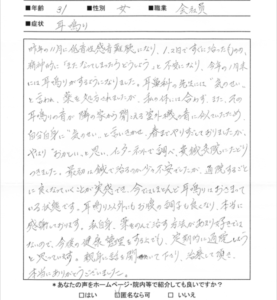 ■年齢 31 ■性別 女 ■職業 会社員
■症状
耳鳴り
昨年の11月に低音性感音難聴になり、1、2日ですぐに治ったものの、
精神的に「またなってしまったらどうしよう」と不安になり、今年の1月末
には耳鳴りがするようになりました。耳鼻科の先生には"気のせい"
と言われ、薬を処方されましたが、私の体には合わず、また、耳の
自分自身に"気のせい"と言いきかせ、
やはり"おかしい"と思い、インターネットで調べ、鍼灸院にたどり
つきました。最初は鍼で治るのか不安でしたが、通院するごと
に良くなっていることが実感でき、今ではほとんど耳鳴りはおさまって
いる状態です。耳鳴り以外にもお腹の調子も良くなり、本当に
感謝しております。私自身、薬をのんで治す方法があまり好きでは
ないので、今後の健康管理をするためにも、定期的に通院しよう
と思っています。親身に話を聞いて下さり、治療して頂き、
本当にありがとうございました。
*あなたの声をホームページ・院内等で紹介しても良いですか?
□はい ☑匿名なら可 □いいえ